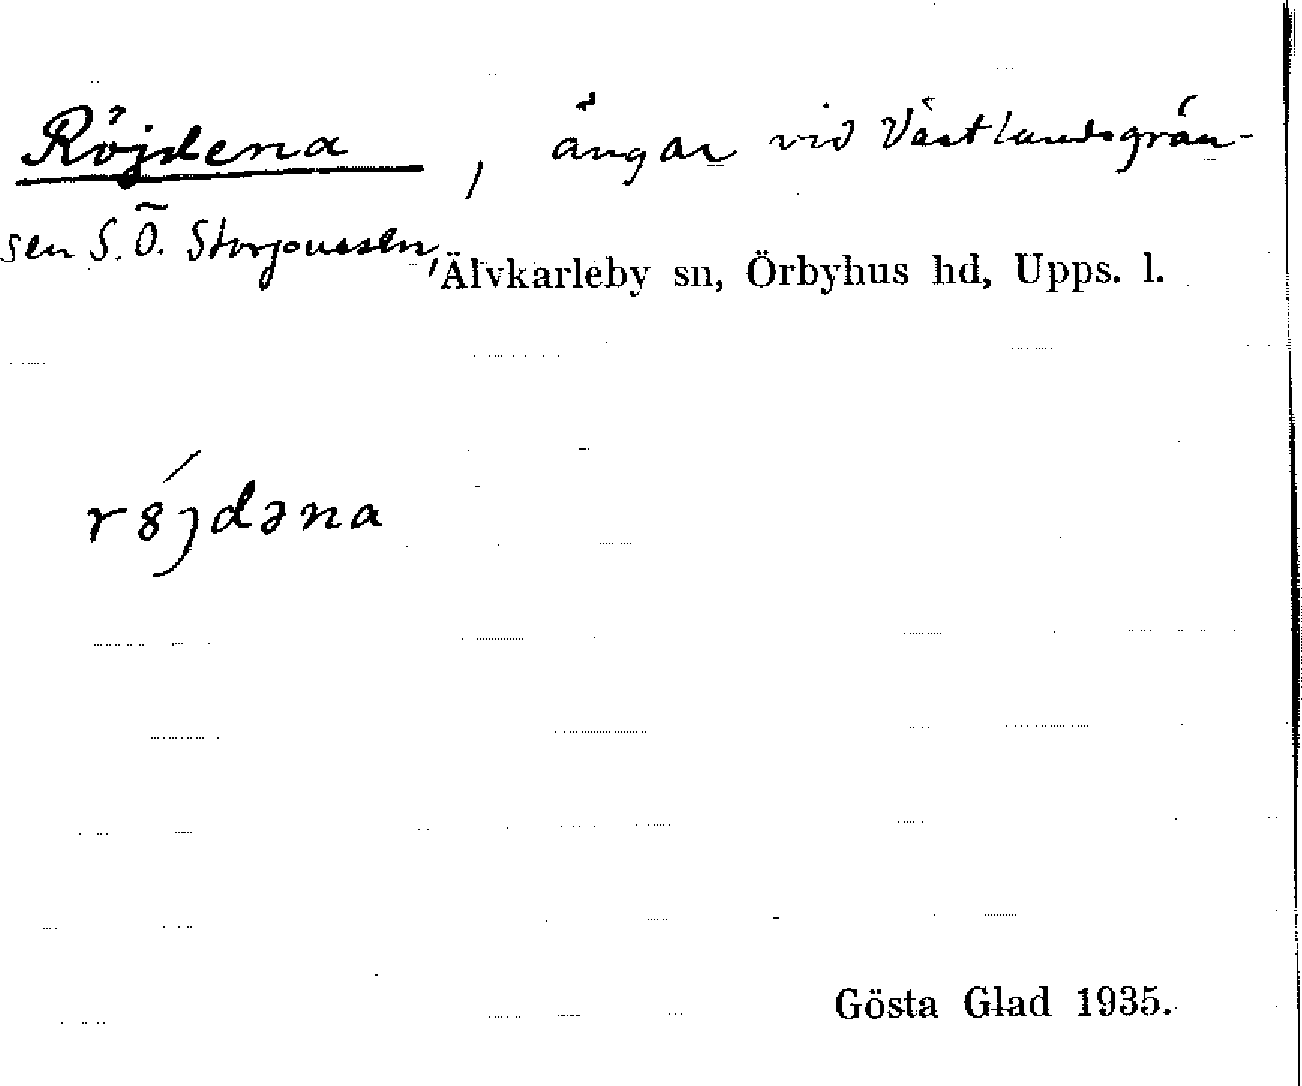 Röjdena, ängar vid Västlandsgrän-
sen S.Ö. Storjoussen,
Älvkarleby sn, Örbyhus hd, Upps. l.
rö́jdəna
Gösta Glad 1935.